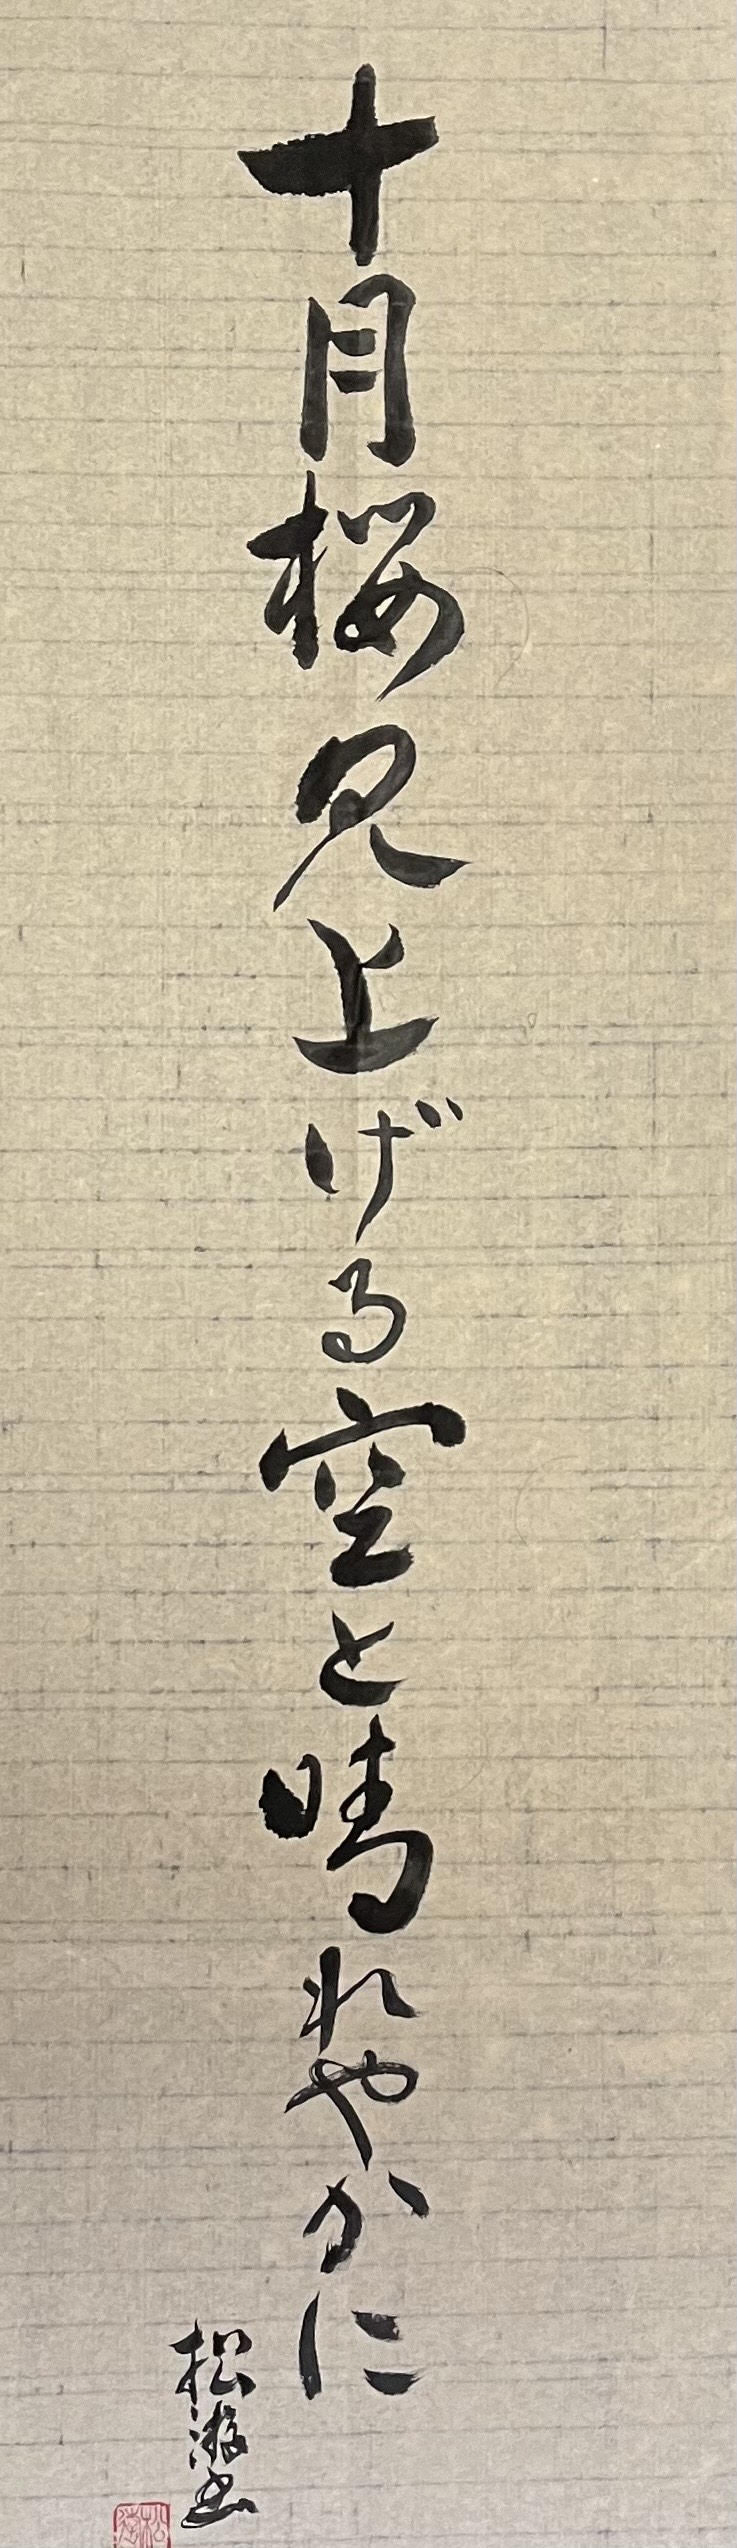 十月桜見上げる空と晴れやかに
松游書